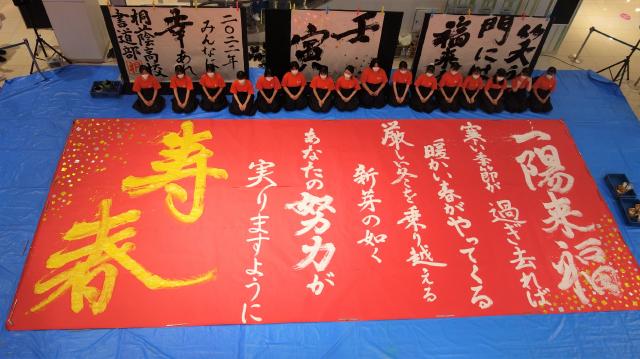 笑う
門には
福来
壬
寅
二〇二二年
みんなに
幸あれ
桐蔭高校
書道部
一陽来福
寒い季節が過ぎ去れば
暖かい春がやってくる
厳しい冬を乗り越える
新芽の如く
あなたの努力が
実りますように
寿春